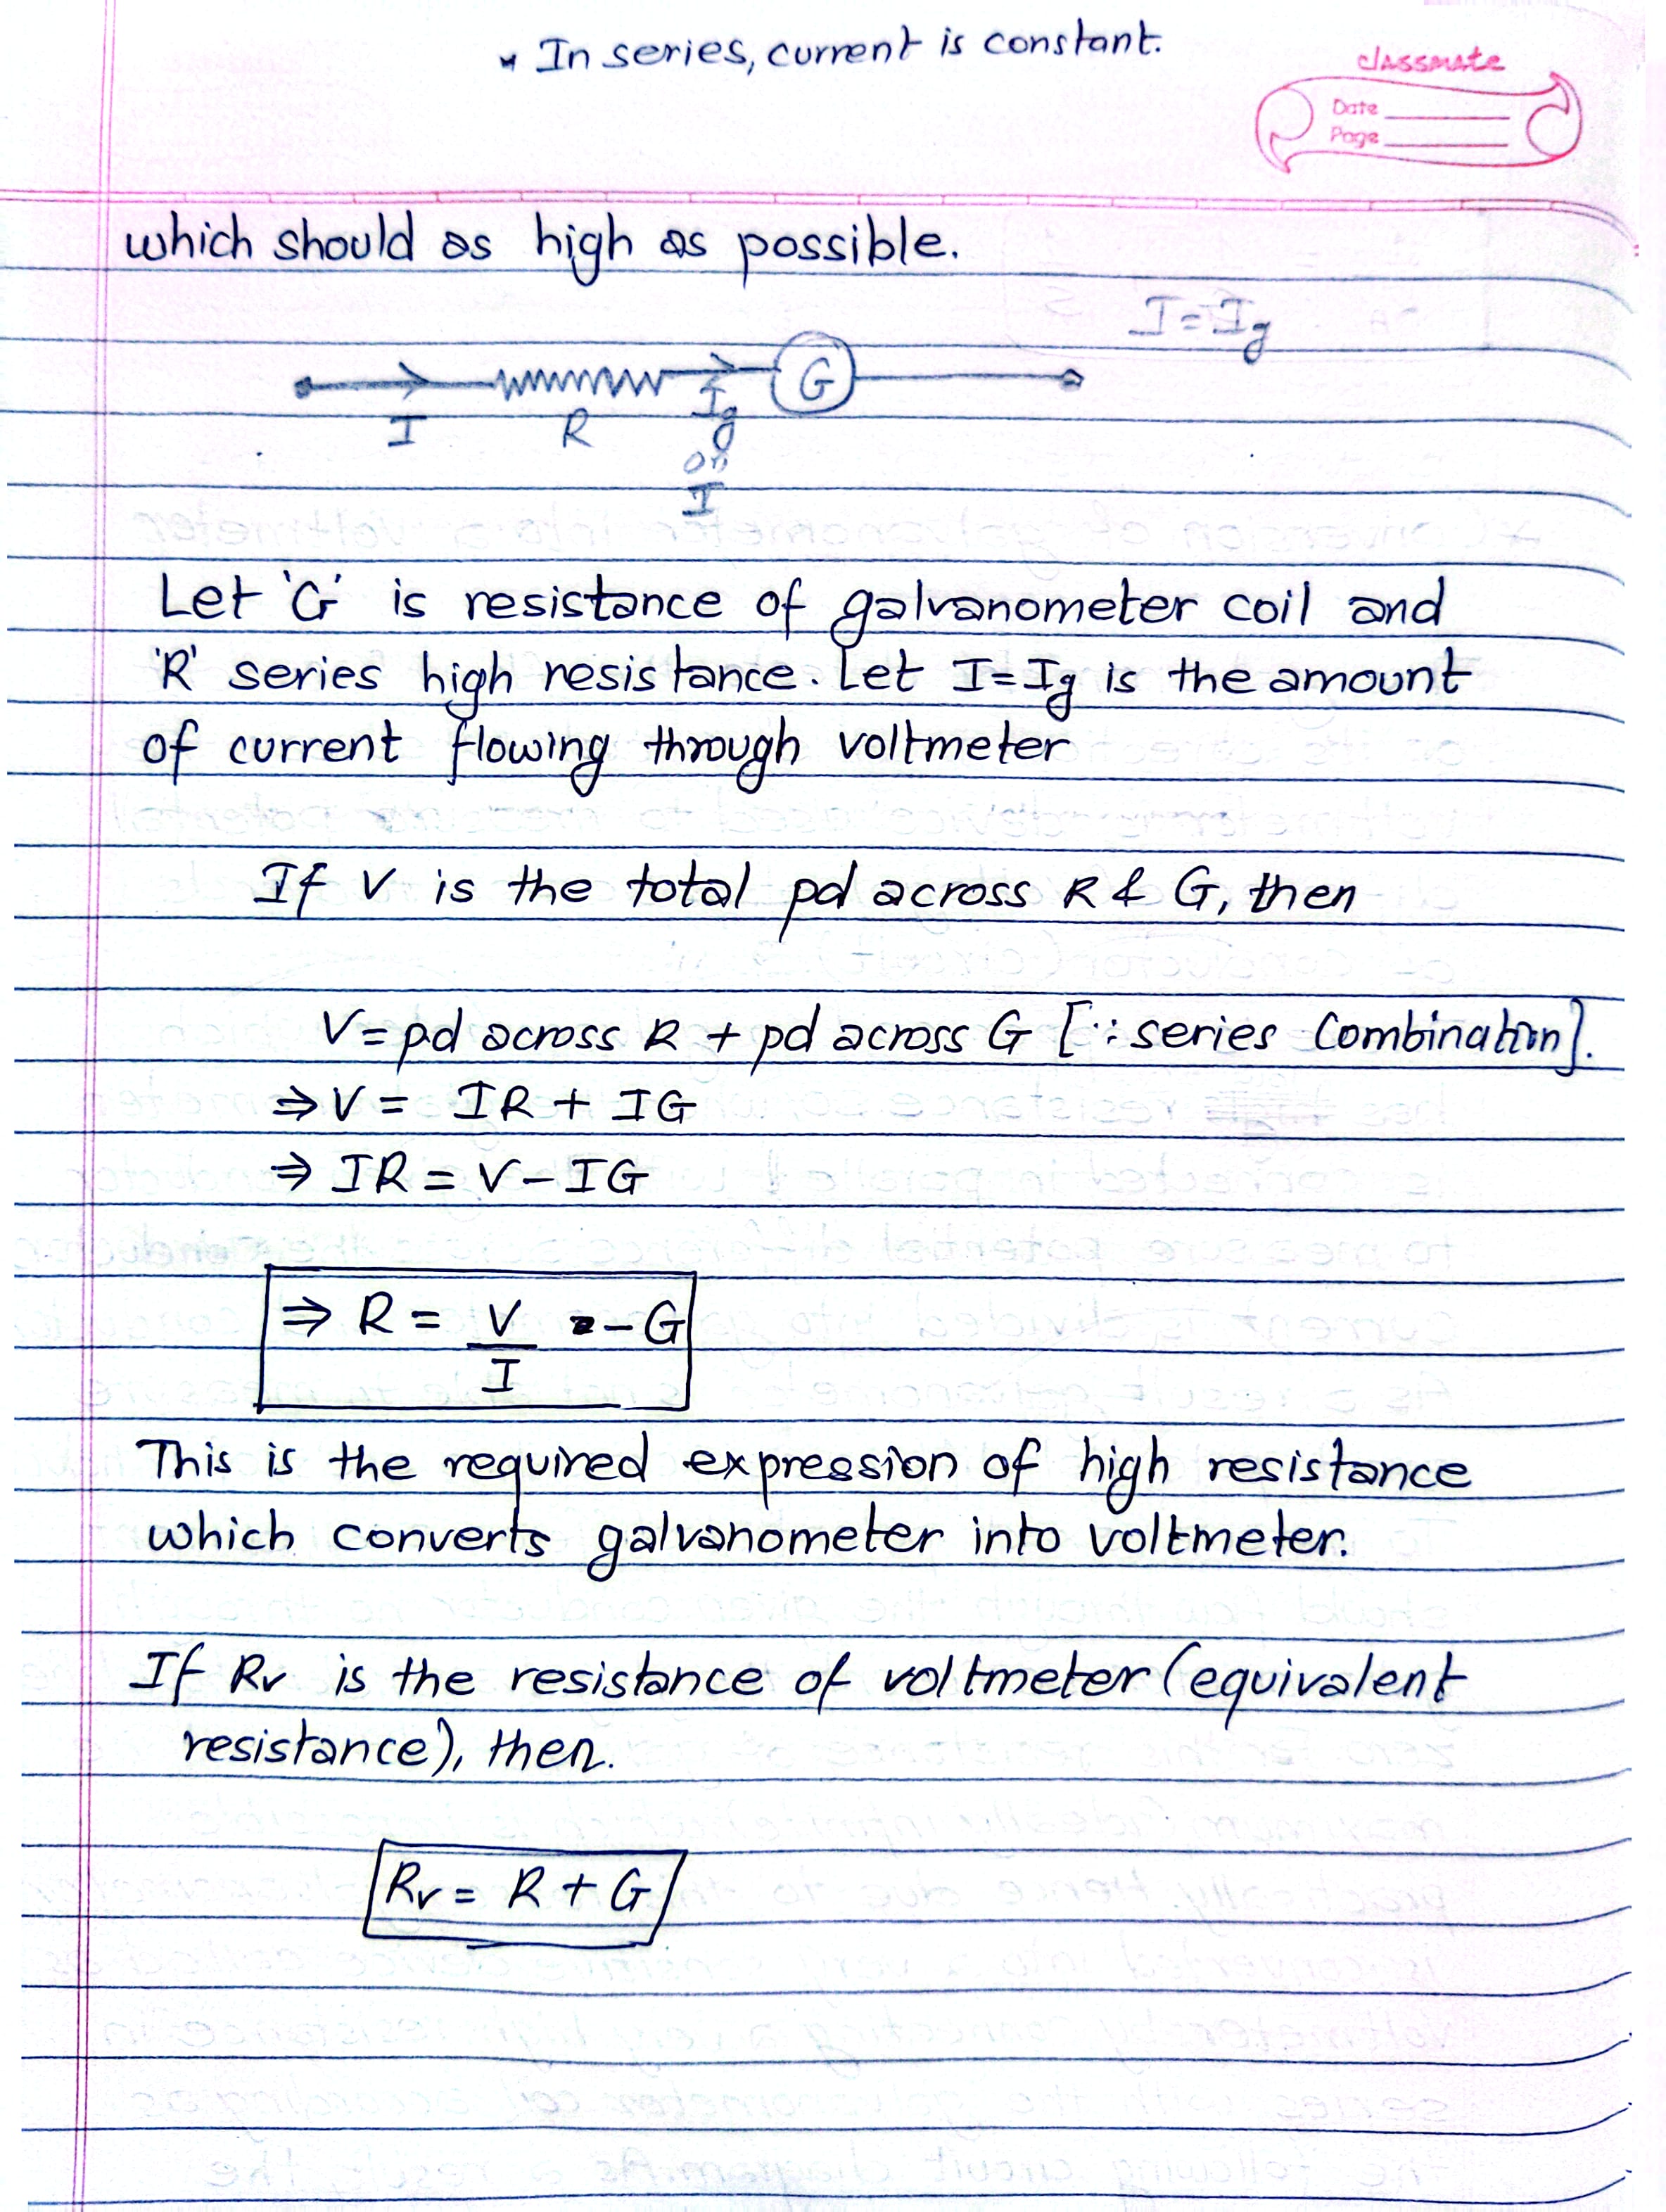 * In series, current is constant.
classmate
Date
Page
which should as high as possible.
I = Ig
G
I R Ig
or
I
Let 'G' is resistance of galvanometer coil and
'R' series high resistance. Let I = Ig is the amount
of current flowing through voltmeter
If V is the total pd across R & G, then
V = pd across R + pd across G [∵ series Combination].
⇒ V = IR + IG
⇒ IR = V - IG
⇒ R = V/I - G
This is the required expression of high resistance
which converts galvanometer into voltmeter.
If Rv is the resistance of voltmeter (equivalent
resistance), then.
Rv = R + G